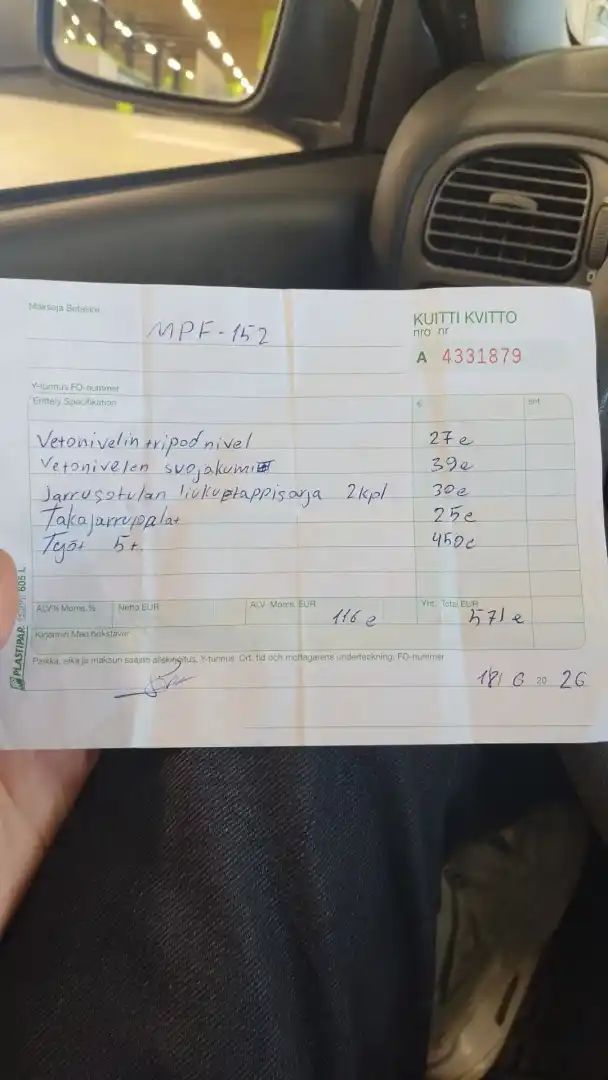 Maksaja Betalare
MPF-152
KUITTI KVITTO
nro nr
A 4331879
Y-tunnus FO-nummer
Erittely Specifikation € snt
Vetonivelin tripod nivel 27e
Vetonivelen suojakumi 39e
Jarrusatulan liukutappisarja 2kpl 30e
Takajarrupalat 25e
Työt 5t. 450e
ALV% Moms.% Netto EUR ALV Moms. EUR 116 e Yht. Total EUR 571 e
Kirjaimin Med bokstäver
Paikka, aika ja maksun saajan allekirjoitus, Y-tunnus Ort, tid och mottagarens underteckning, FO-nummer
6 20 26
PLASTIPAP 605 L